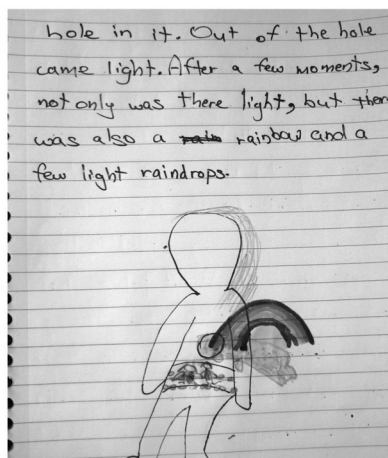 hole in it. Out of the hole
came light. After a few moments,
not only was there light, but ther
was also a rainbow and a
few light raindrops.